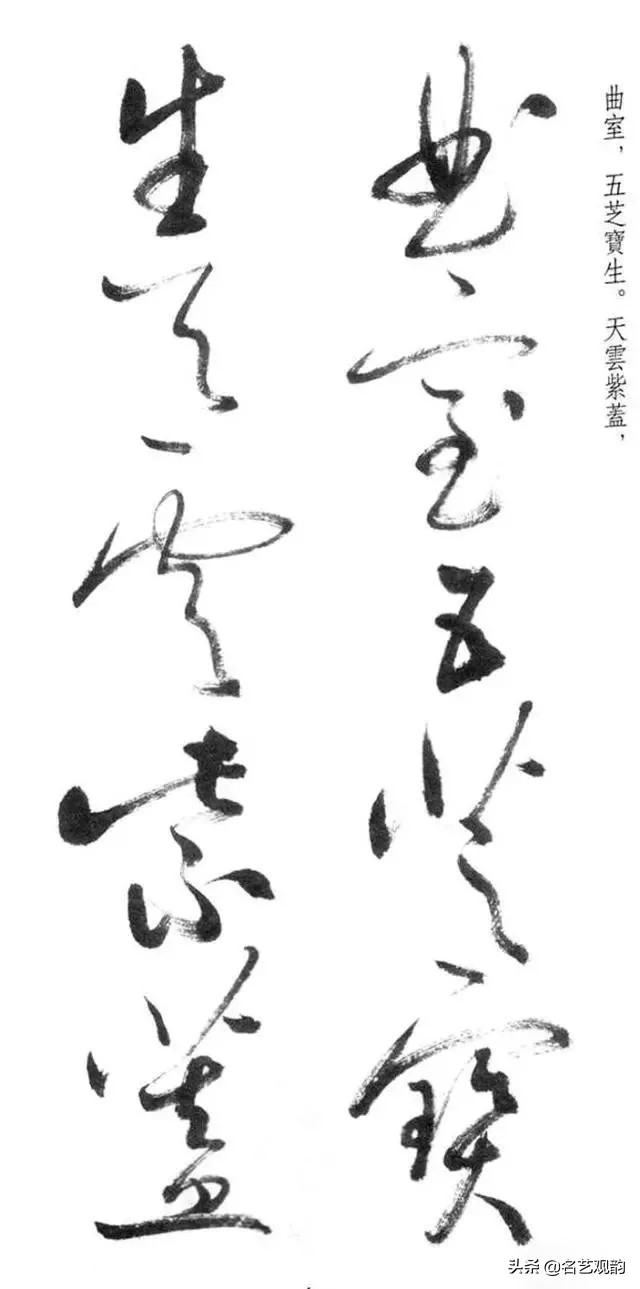 曲室，五芝寶生。天雲紫蓋，
曲室五芝寶
生天雲紫蓋
头条 @名艺观韵